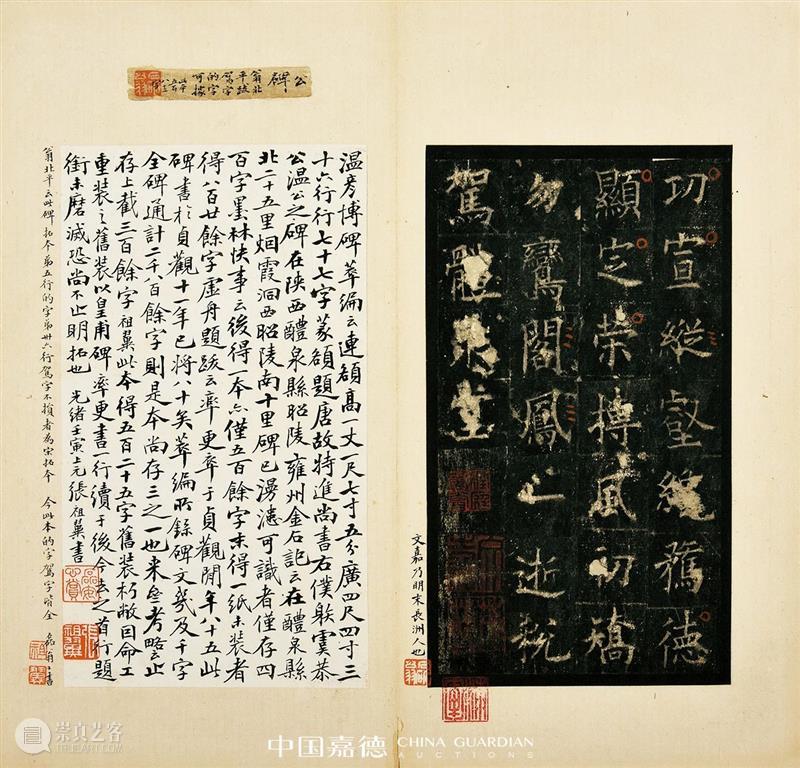 公
碑
翁北
平跋
駕字
的字
可據
功宣縱壑舊德
顯定榮摶風初矯
勿鸞閣鳳亡逝
駕龍
文嘉乃明末長洲人也
温彥博碑萃編云連額高一丈一尺七寸五分廣四尺四寸三
十六行行七十七字篆額題唐故特進尚書右僕射虞恭
公温公之碑在陝西醴泉縣昭陵雍州金石記云在醴泉縣
北二十五里烟霞洞西昭陵南十里碑已漫漶可識者僅存四
百字墨林快事云後得一本亦僅五百餘字末得一紙未裝者
得八百廿餘字虛舟題跋云率更卒于貞觀閒年八十五此
碑書於貞觀十一年已將八十矣萃編所錄碑文幾及千字
全碑通計二千八百餘字則是本尚存三之一也來參考略云止
存上截三百餘字祖翼此本得五百二十五字舊裝朽敝因命工
重裝之舊裝以皇甫碑率更書一行續于後今去之首行題
銜未磨滅恐尚不止明拓也 光緒壬寅上元張祖翼書
翁北平云此碑拓本弟五行的字弟卅六行駕字不損者為宋拓本 今此本的字駕字皆全 磊翁又書
崇真艺客
TRUEART.COM
中国嘉德 CHINA GUARDIAN
AUCTIONS